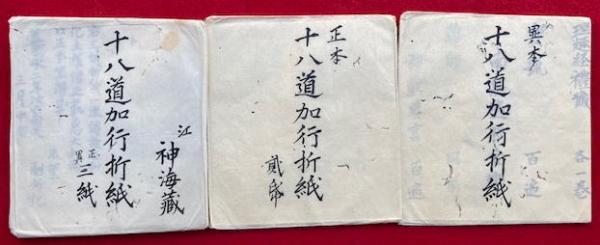 異本
十八道加行折紙
正本
十八道加行折紙
貳帋
江
神海藏
十八道加行折紙
正異三紙